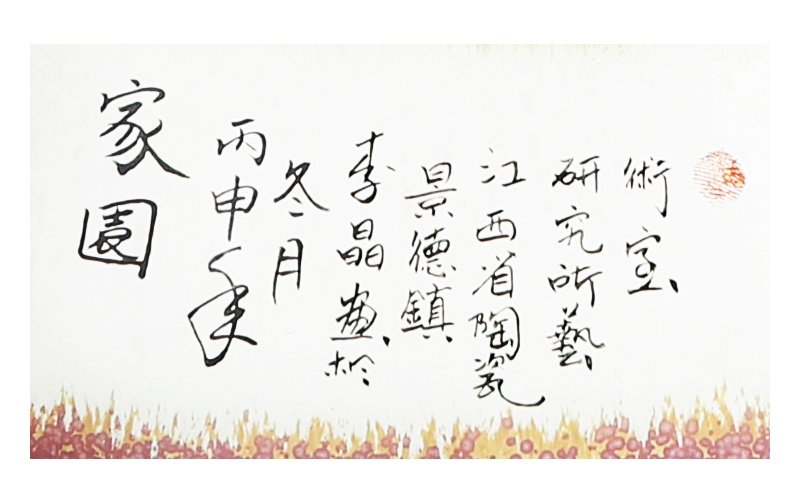 家園
丙申年
冬月
李晶畫於
景德鎮
江西省陶瓷
研究所藝
術室